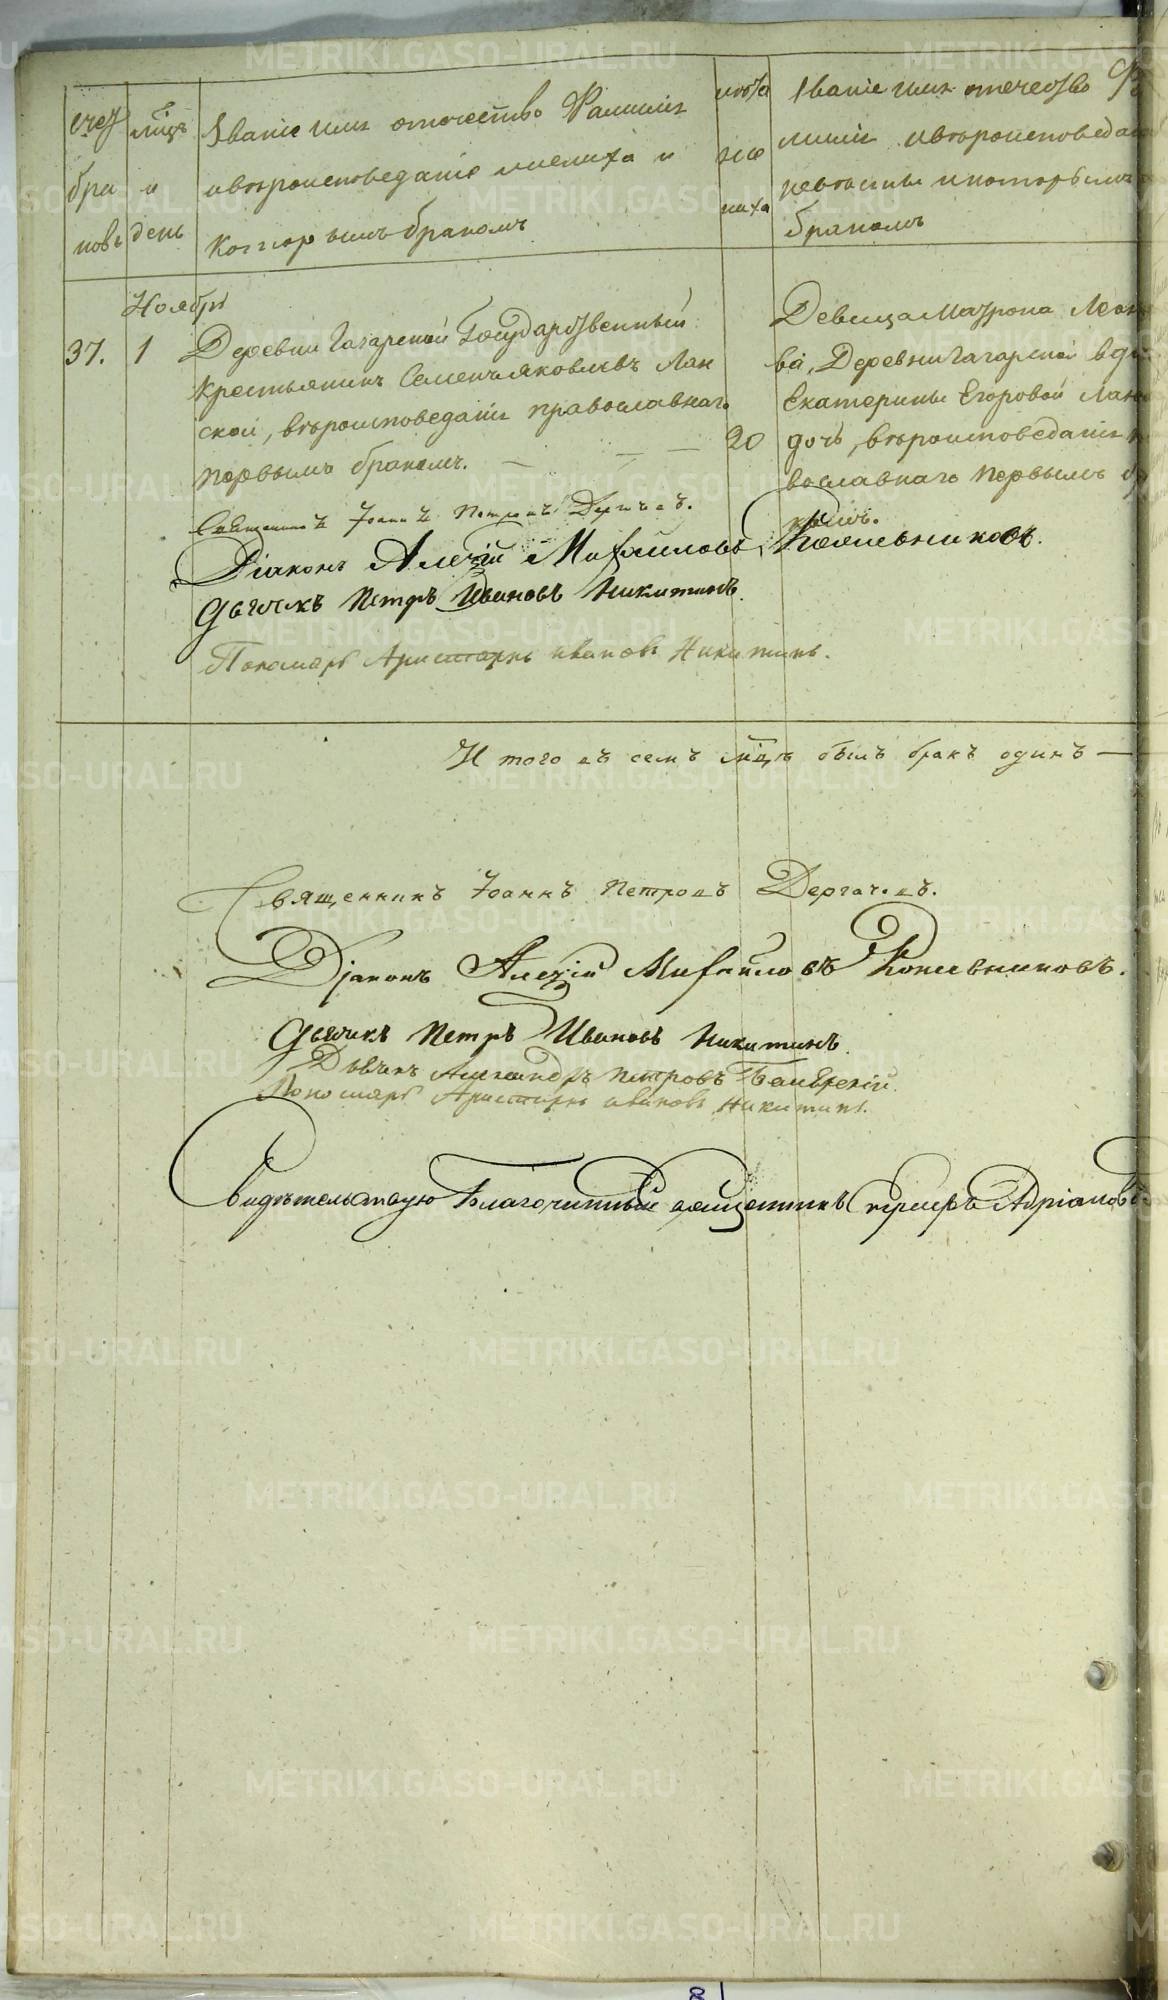 счет
бра
ковъ
мцъ
и
день
Званіе имя отечество Фамилія
и вѣроисповѣданіе жениха и
которымъ бракомъ
лѣта
же
ниха
Званіе имя отечество Фа
миліе и вѣроисповеда
невѣсты и которымъ
бракомъ
Ноября
37. 1
Деревни Гагарской Государственный
Крестьянинъ Семенъ Яковлевъ Лан
ской, вѣроисповеданія православнаго
первымъ бракомъ.
20
Девица Матрона Леон
ва, Деревни Гагарской вдо
Екатерины Егоровой Лан
дочь, вѣроисповеданія п
вославнаго первымъ бр
комъ.
Священникъ Іоаннъ Петровъ Дергачевъ.
Діаконъ Алексій Михайловъ Коневниковъ.
Дьячекъ Петръ Ивановъ Никитинъ.
Пономарь Аристархъ Ивановъ Никитинъ.
Итого въ семъ мцѣ былъ бракъ одинъ
Священникъ Іоаннъ Петровъ Дергачевъ.
Діаконъ Алексій Михайловъ Коневниковъ.
Дьячекъ Петръ Ивановъ Никитинъ.
Дьячекъ Александръ Петровъ
Пономарь Аристархъ Ивановъ Никитинъ.
Свидѣтельствую Благочинный священникъ Адріановъ
METRIKI.GASO-URAL.RU